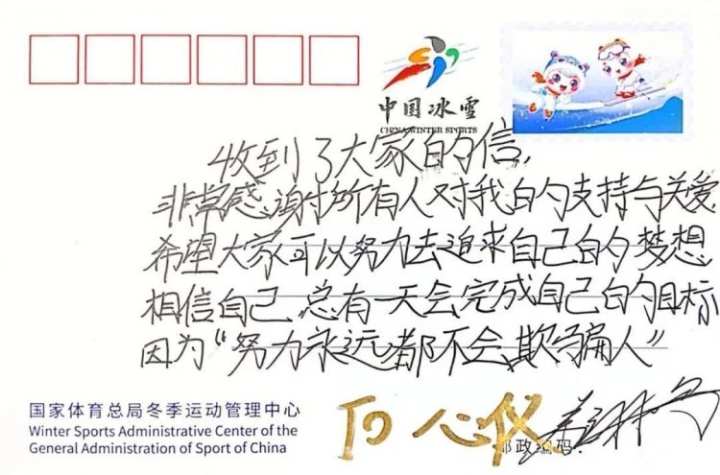 中国冰雪
CHINA WINTER SPORTS
收到了大家的信,
非常感谢所有人对我的支持与关爱
希望大家可以努力去追求自己的梦想
相信自己 总有一天会完成自己的目标
因为“努力永远都不会欺骗人”
国家体育总局冬季运动管理中心
Winter Sports Administrative Center of the
General Administration of Sport of China
邮政编码: